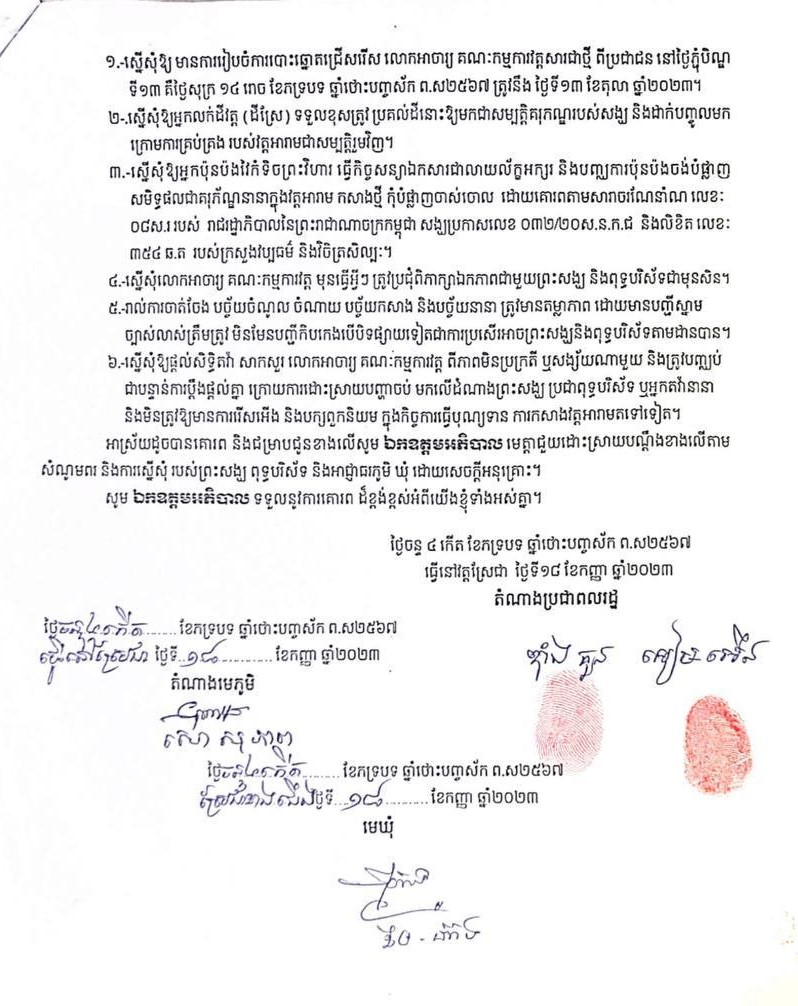 ១.-ស្នើសុំឱ្យ មានការរៀបចំការបោះឆ្នោតជ្រើសរើស លោកអាចារ្យ គណៈកម្មការវត្តសារជាថ្មី ពីប្រជាជន នៅថ្ងៃភ្ជុំបិណ្ឌ
ទី១៣ គឺថ្ងៃសុក្រ ១៤ រោច ខែភទ្របទ ឆ្នាំថោះបញ្ចស័ក ព.ស២៥៦៧ ត្រូវនឹង ថ្ងៃទី១៣ ខែតុលា ឆ្នាំ២០២៣។
២-.ស្នើសុំឱ្យអ្នកលក់ដីវត្ត (ដីស្រែ) ទទួលខុសត្រូវ ប្រគល់ដីនោះឱ្យមកជាសម្បត្តិគរុភណ្ឌរបស់សង្ឃ និងដាក់បញ្ចូលមក
ក្រោមការគ្រប់គ្រង របស់វត្តអារាមជាសម្បត្តិរួមវិញ។
៣.-ស្នើសុំឱ្យអ្នកប៉ុនប៉ងវៃកំទិចព្រះវិហារ ធ្វើកិច្ចសន្យាឯកសារជាលាយល័ក្ខអក្សរ និងបញ្ឈប់ការប៉ុនប៉ងចង់បំផ្លាញ
សមិទ្ធផលជាគរុភ័ណ្ឌនានាក្នុងវត្តអារាម កសាងថ្មី កុំបំផ្លាញចាស់ចោល ដោយគោរពតាមសារាចរណែនាំណ លេខៈ
០៨ស.រ របស់ រាជរដ្ឋាភិបាលនៃព្រះរាជាណាចក្រកម្ពុជា សង្ឃប្រកាសលេខ ០៣២/២០ស.ន.ក.ជ និងលិខិត លេខៈ
៣៥៤ ធ.ត របស់ក្រសួងវប្បធម៌ និងវិចិត្រសិល្បៈ។
៤.-ស្នើសុំលោកអាចារ្យ គណៈកម្មការវត្ត មុនធ្វើអ្វីៗ ត្រូវប្រជុំពិភាក្សាឯកភាពជាមួយព្រះសង្ឃ និងពុទ្ធបរិស័ទជាមុនសិន។
៥.-រាល់ការចាត់ចែង បច្ច័យចំណូល ចំណាយ បច្ច័យកសាង និងបច្ច័យនានា ត្រូវមានតម្លាភាព ដោយមានបញ្ជីស្នាម
ច្បាស់លាស់ត្រឹមត្រូវ មិនមែនបញ្ជីកិបកេងបើបិទផ្សាយទៀតជាការប្រសើរអាចព្រះសង្ឃនិងពុទ្ធបរិស័ទតាមដានបាន។
៦.-ស្នើសុំឱ្យផ្តល់សិទ្ធិតវ៉ា សាកសួរ លោកអាចារ្យ គណៈកម្មការវត្ត ពីភាពមិនប្រក្រតី ឬសង្ស័យណាមួយ និងត្រូវបញ្ឈប់
ជាបន្ទាន់ការប្តឹងផ្តល់គ្នា ក្រោយការដោះស្រាយបញ្ហាចប់ មកលើដំណាងព្រះសង្ឃ ប្រជាពុទ្ធបរិស័ទ ឬអ្នកតវ៉ានានា
និងមិនត្រូវឱ្យមានការរើសអើង និងបក្សពួកនិយម ក្នុងកិច្ចការធ្វើបុណ្យទាន ការកសាងវត្តអារាមតទៅទៀត។
អាស្រ័យដូចបានគោរព និងជម្រាបជូនខាងលើសូម ឯកឧត្តមអភិបាល មេត្តាជួយដោះស្រាយបណ្តឹងខាងលើតាម
សំណូមពរ និងការស្នើសុំ របស់ព្រះសង្ឃ ពុទ្ធបរិស័ទ និងអាជ្ញាធរភូមិ ឃុំ ដោយសេចក្តីអនុគ្រោះ។
សូម ឯកឧត្តមអភិបាល ទទួលនូវការគោរព ដ៏ខ្ពង់ខ្ពស់អំពីយើងខ្ញុំទាំងអស់គ្នា។
ថ្ងៃចន្ទ ៤ កើត ខែភទ្របទ ឆ្នាំថោះបញ្ចស័ក ព.ស២៥៦៧
ធ្វើនៅវត្តស្រែជា ថ្ងៃទី១៨ ខែកញ្ញា ឆ្នាំ២០២៣
តំណាងប្រជាពលរដ្ឋ
ថ្ងៃចន្ទ ៤កើត......... ខែភទ្របទ ឆ្នាំថោះបញ្ចស័ក ព.ស២៥៦៧
ធ្វើនៅស្រែជា ថ្ងៃទី...១៨............... ខែកញ្ញា ឆ្នាំ២០២៣
តំណាងមេភូមិ
សោ សុភាព
ថ្ងៃចន្ទ ៤កើត.......... ខែភទ្របទ ឆ្នាំថោះបញ្ចស័ក ព.ស២៥៦៧
ថ្ងៃទី...១៨............ ខែកញ្ញា ឆ្នាំ២០២៣
មេឃុំ